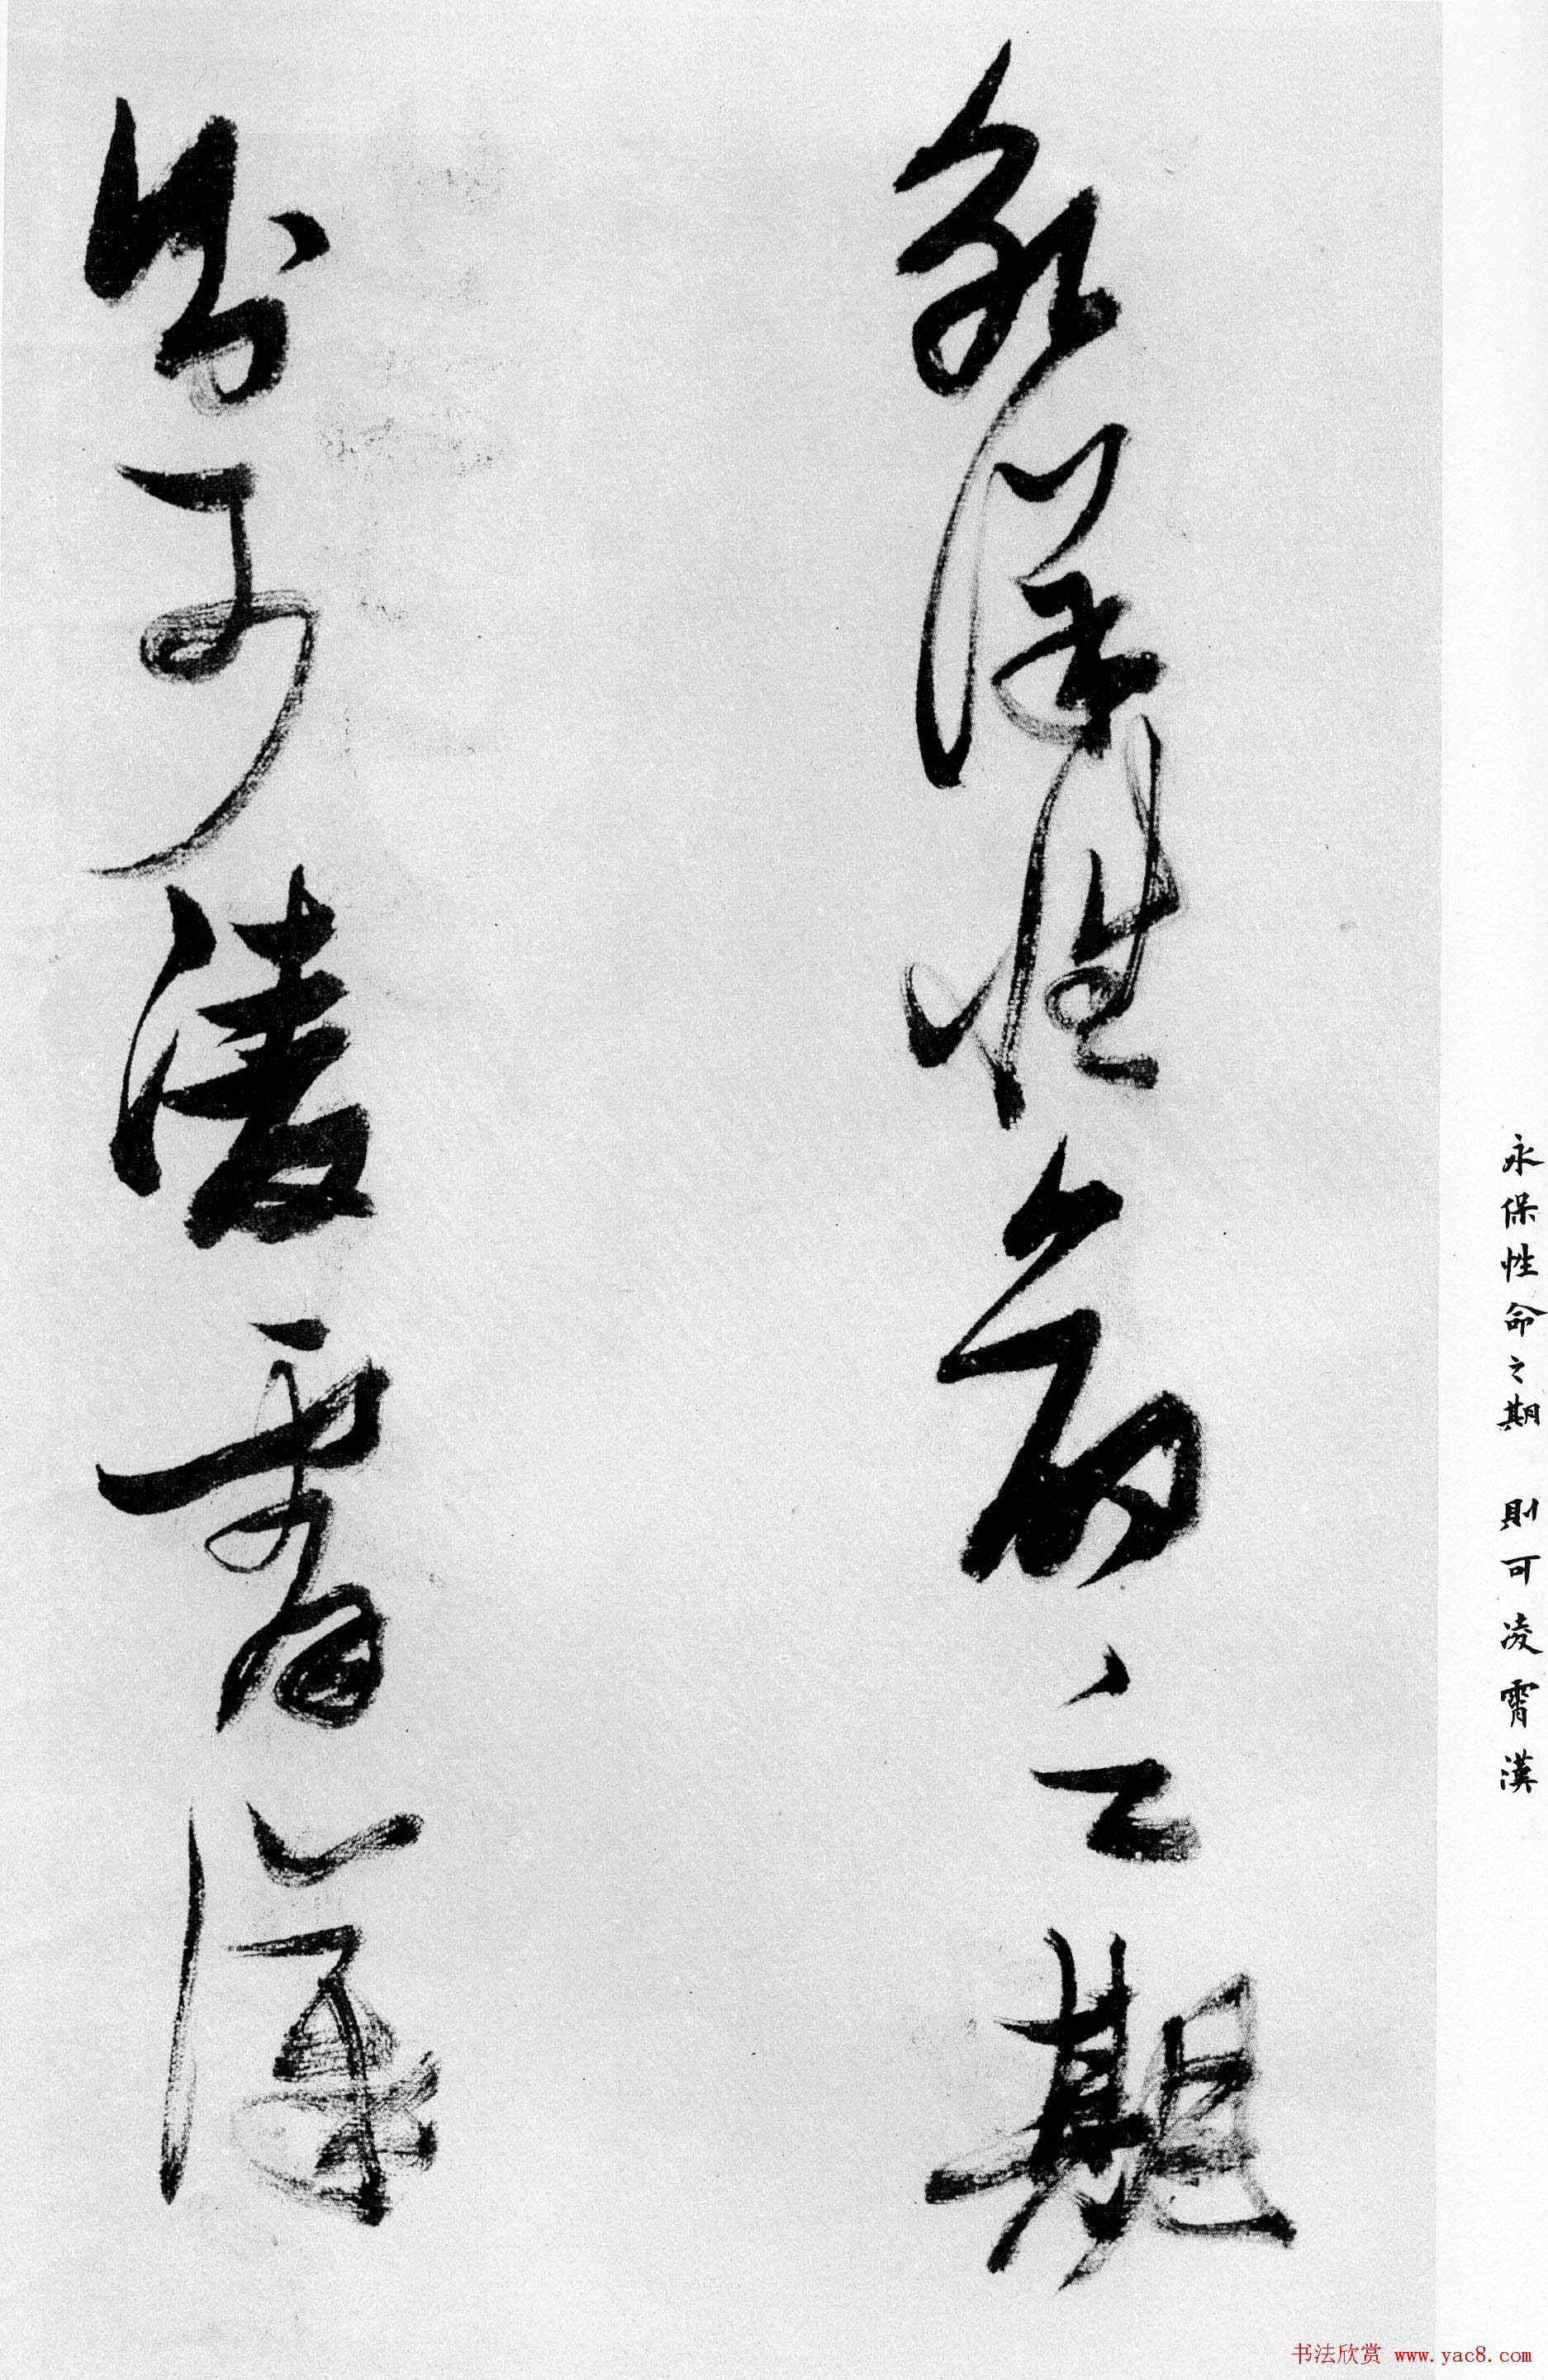 永保性命之期
則可凌霄漢
永保性命之期　則可凌霄漢
书法欣赏 www.yac8.com